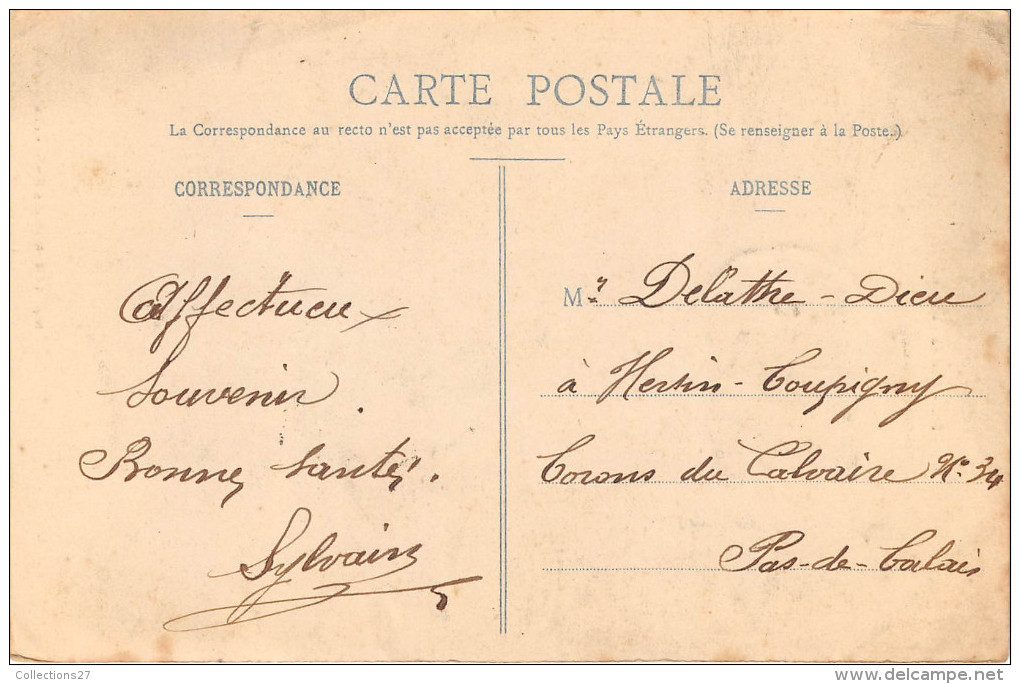 CARTE POSTALE
La Correspondance au recto n'est pas acceptée par tous les Pays Étrangers. (Se renseigner à la Poste.)
CORRESPONDANCE
Affectueux
Souvenir.
Bonne santé.
Sylvain
ADRESSE
Mr Delattre-Dieu
à Hersin-Coupigny
Corons du Calvaire No. 34
Pas-de-Calais
Collections27
www.delcampe.net